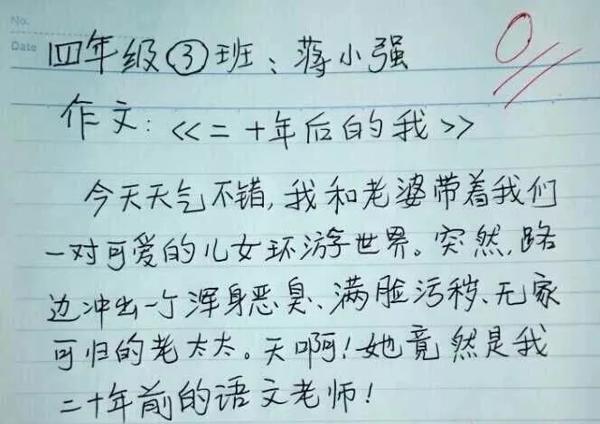 No.
Date
四年级③班：蒋小强
0
作文：《二十年后的我》
今天天气不错,我和老婆带着我们
一对可爱的儿女环游世界。突然,路
边冲出一个浑身恶臭、满脸污秽、无家
可归的老太太。天啊!她竟然是我
二十年前的语文老师!